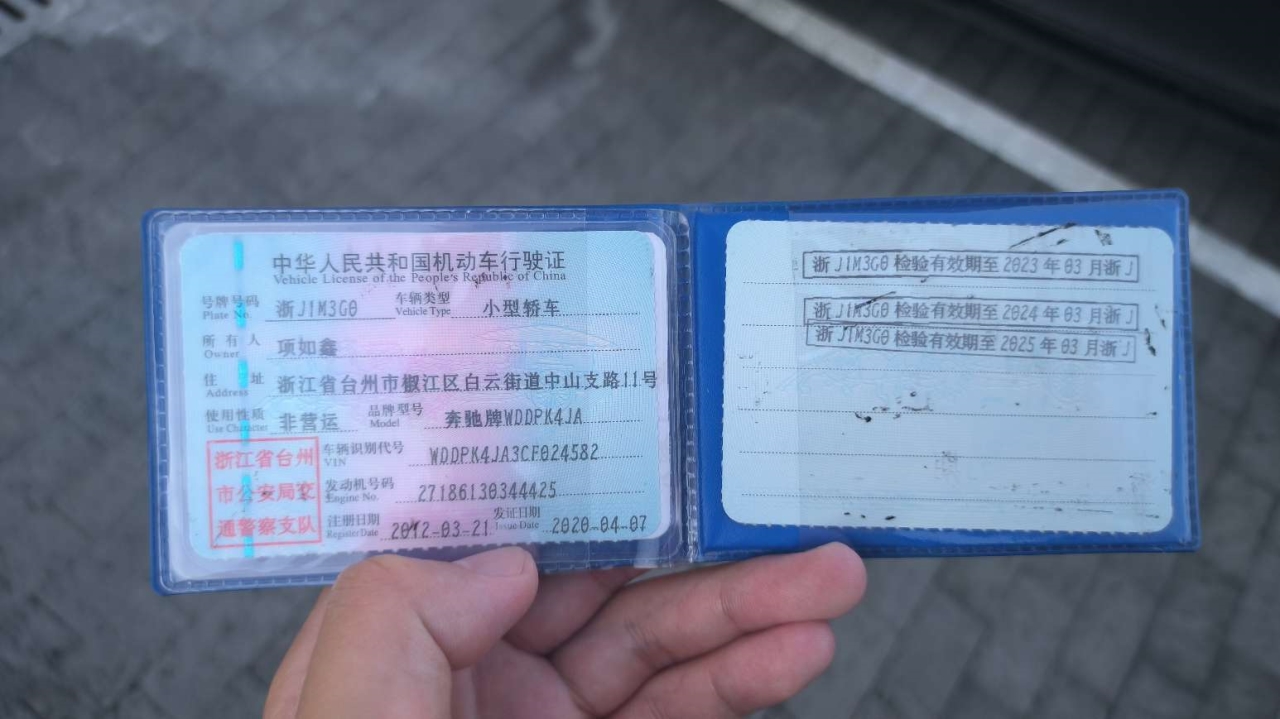 中华人民共和国机动车行驶证
Vehicle License of the People's Republic of China
号牌号码 浙J1M3G0 车辆类型 小型轿车
Plate No. Vehicle Type
所有人 项如鑫
Owner
住址 浙江省台州市椒江区白云街道中山支路11号
Address
使用性质 非营运 品牌型号 奔驰牌WDDPK4JA
Use Character Model
浙江省台州
市公安局交
通警察支队
车辆识别代号 WDDPK4JA3CF024582
VIN
发动机号码 27186130344425
Engine No.
注册日期 2012-03-21 发证日期 2020-04-07
Register Date Issue Date
浙J1M3G0 检验有效期至 2023 年 03 月浙J
浙J1M3G0 检验有效期至 2024 年 03 月浙J
浙J1M3G0 检验有效期至 2025 年 03 月浙J